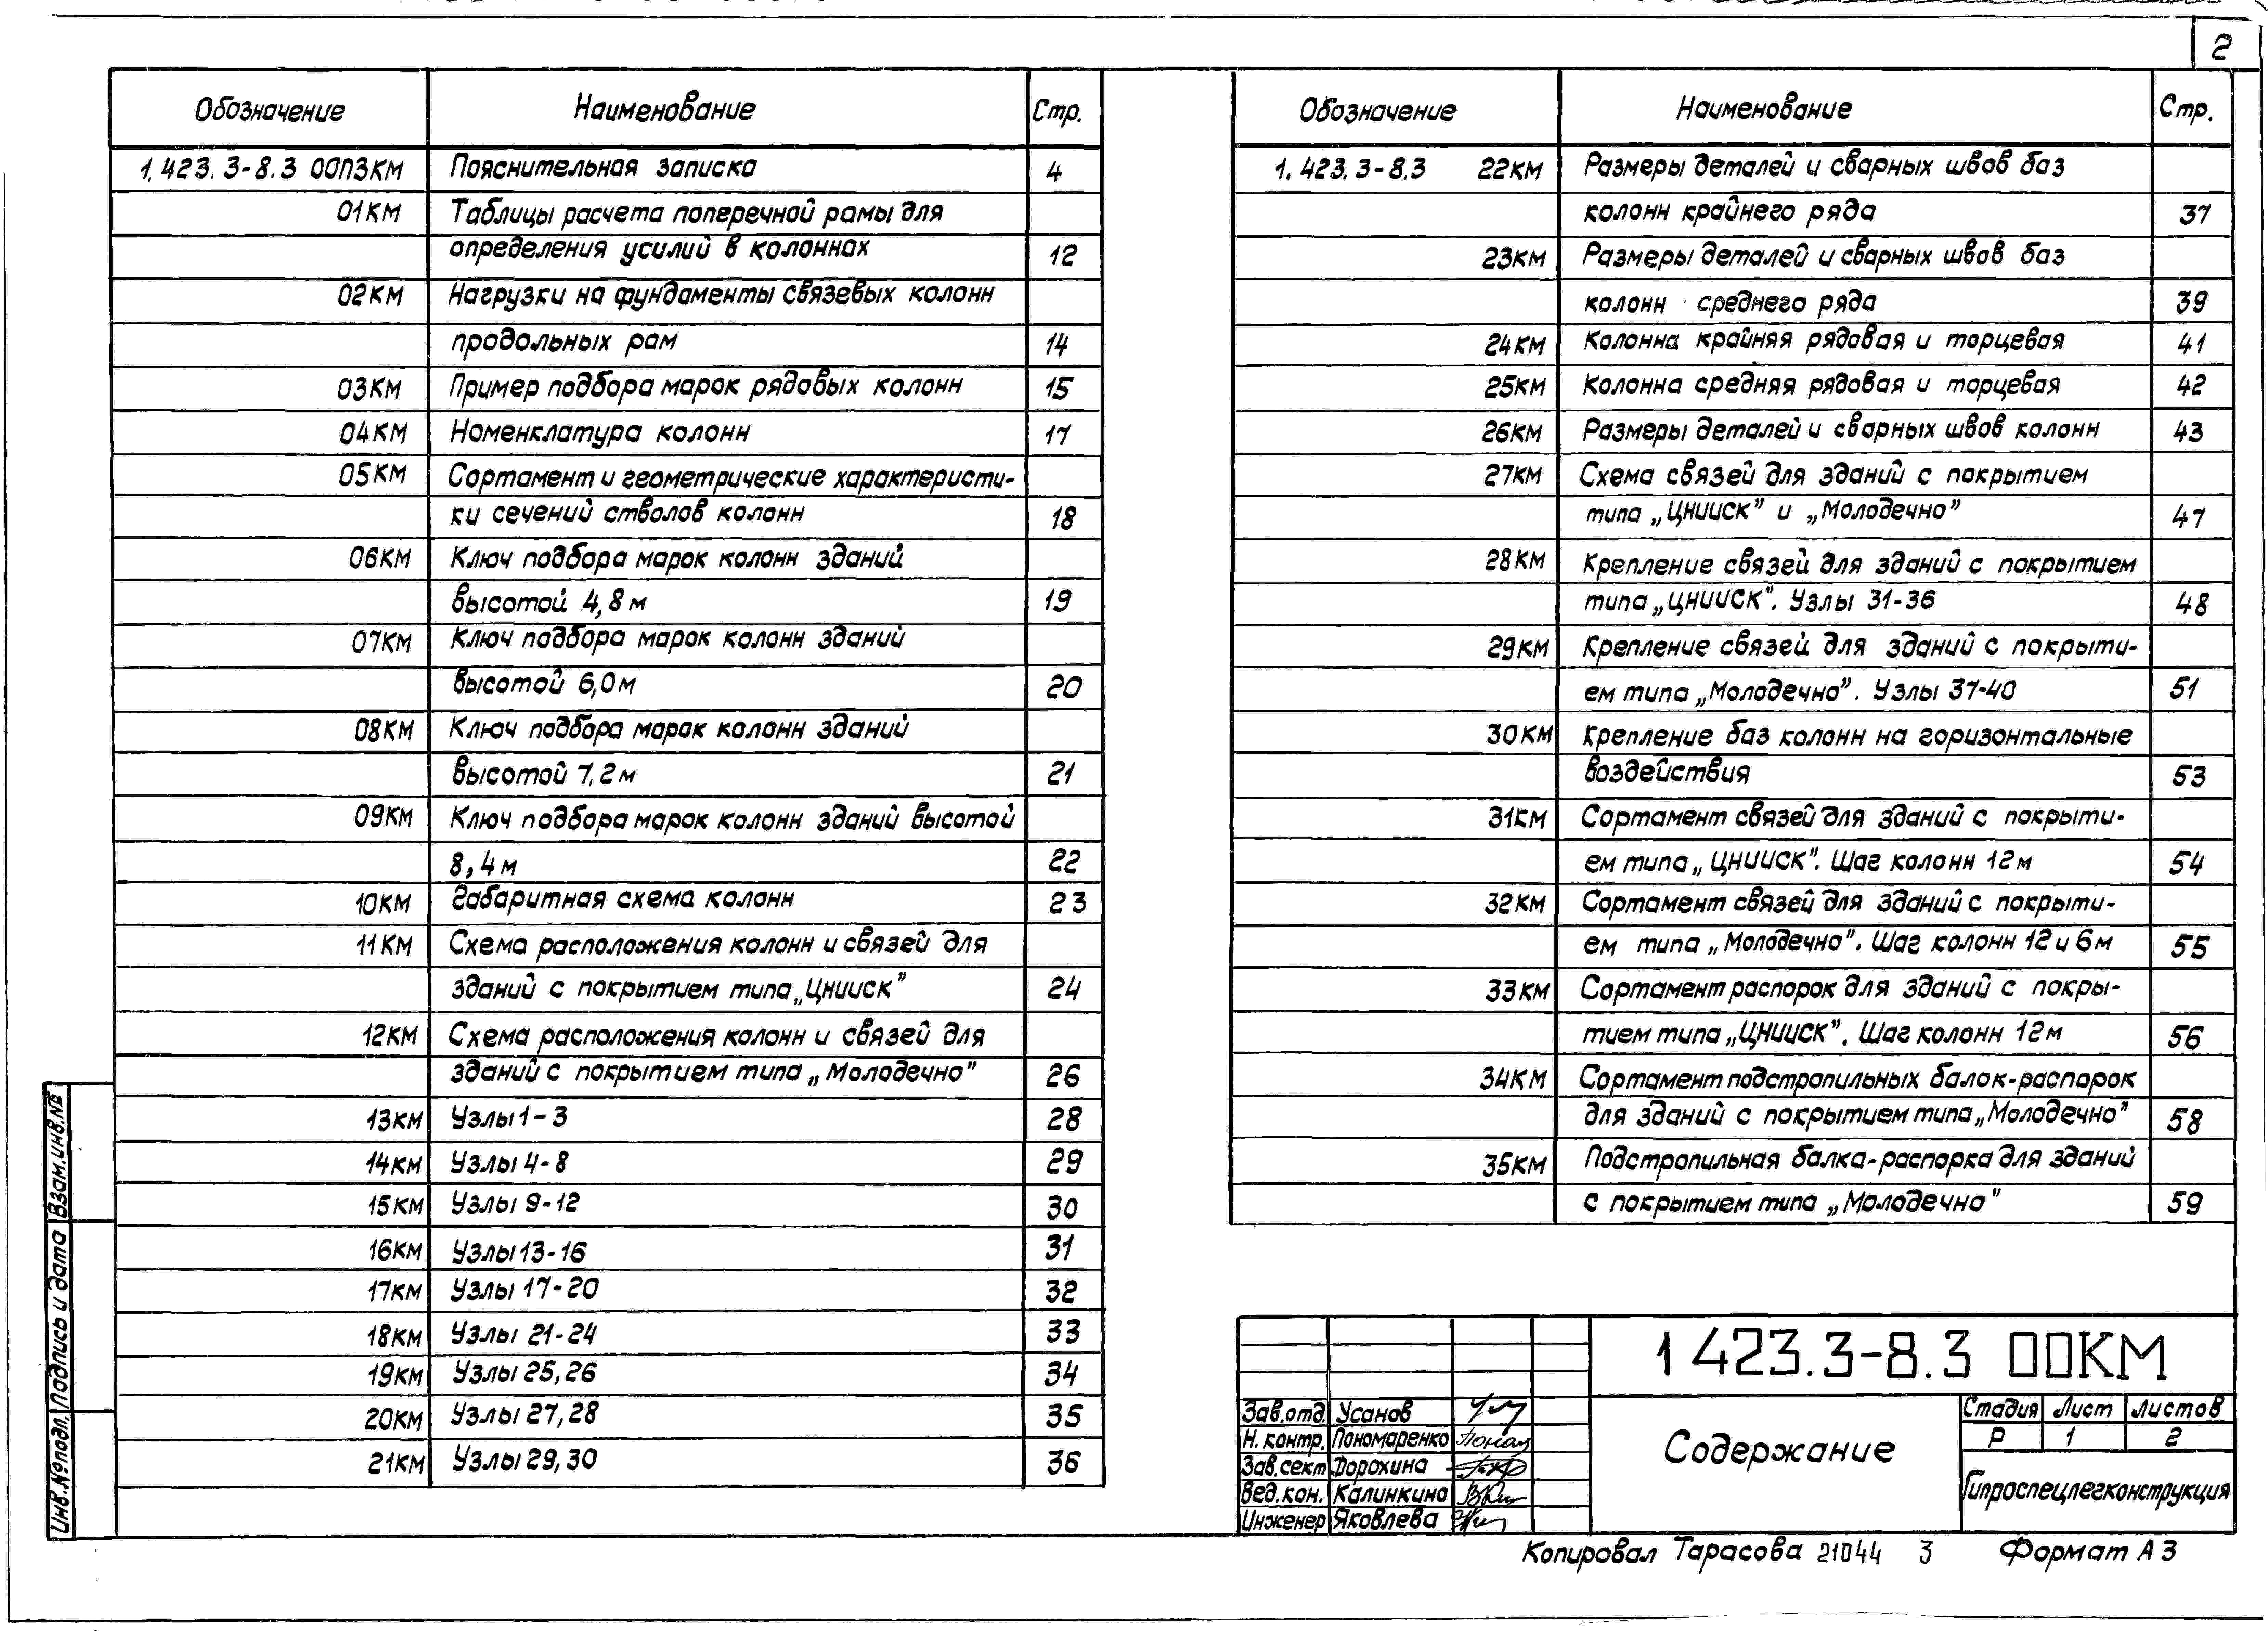 2
Обозначение Наименование Стр.
1.423.3-8.3 00ПЗКМ Пояснительная записка 4
01КМ Таблицы расчета поперечной рамы для
определения усилий в колоннах 12
02КМ Нагрузки на фундаменты связевых колонн
продольных рам 14
03КМ Пример подбора марок рядовых колонн 15
04КМ Номенклатура колонн 17
05КМ Сортамент и геометрические характеристи-
ки сечений стволов колонн 18
06КМ Ключ подбора марок колонн зданий
высотой 4,8 м 19
07КМ Ключ подбора марок колонн зданий
высотой 6,0 м 20
08КМ Ключ подбора марок колонн зданий
высотой 7,2 м 21
09КМ Ключ подбора марок колонн зданий высотой
8,4 м 22
10КМ Габаритная схема колонн 23
11КМ Схема расположения колонн и связей для
зданий с покрытием типа „ЦНИИСК” 24
12КМ Схема расположения колонн и связей для
зданий с покрытием типа „Молодечно” 26
13КМ Узлы 1-3 28
14КМ Узлы 4-8 29
15КМ Узлы 9-12 30
16КМ Узлы 13-16 31
17КМ Узлы 17-20 32
18КМ Узлы 21-24 33
19КМ Узлы 25,26 34
20КМ Узлы 27,28 35
21КМ Узлы 29,30 36
Обозначение Наименование Стр.
1.423.3-8.3 22КМ Размеры деталей и сварных швов баз
колонн крайнего ряда 37
23КМ Размеры деталей и сварных швов баз
колонн среднего ряда 39
24КМ Колонна крайняя рядовая и торцевая 41
25КМ Колонна средняя рядовая и торцевая 42
26КМ Размеры деталей и сварных швов колонн 43
27КМ Схема связей для зданий с покрытием
типа „ЦНИИСК” и „Молодечно” 47
28КМ Крепление связей для зданий с покрытием
типа „ЦНИИСК”. Узлы 31-36 48
29КМ Крепление связей для зданий с покрыти-
ем типа „Молодечно”. Узлы 37-40 51
30КМ Крепление баз колонн на горизонтальные
воздействия 53
31КМ Сортамент связей для зданий с покрыти-
ем типа „ЦНИИСК”. Шаг колонн 12 м 54
32КМ Сортамент связей для зданий с покрыти-
ем типа „Молодечно”. Шаг колонн 12 и 6 м 55
33КМ Сортамент распорок для зданий с покры-
тием типа „ЦНИИСК”. Шаг колонн 12 м 56
34КМ Сортамент подстропильных балок-распорок
для зданий с покрытием типа „Молодечно” 58
35КМ Подстропильная балка-распорка для зданий
с покрытием типа „Молодечно” 59
Взам.инв.№
Подпись и дата
Инв.№ подл.
1 423.3-8.3 00КМ
Зав.отд. Усанов
Н.контр. Пономаренко
Зав.сект Дорохина
Вед.кон. Калинкина
Инженер Яковлева
Содержание
Стадия Лист Листов
Р 1 2
Гипроспецлегконструкция
Копировал Тарасова 21044 3 Формат А3